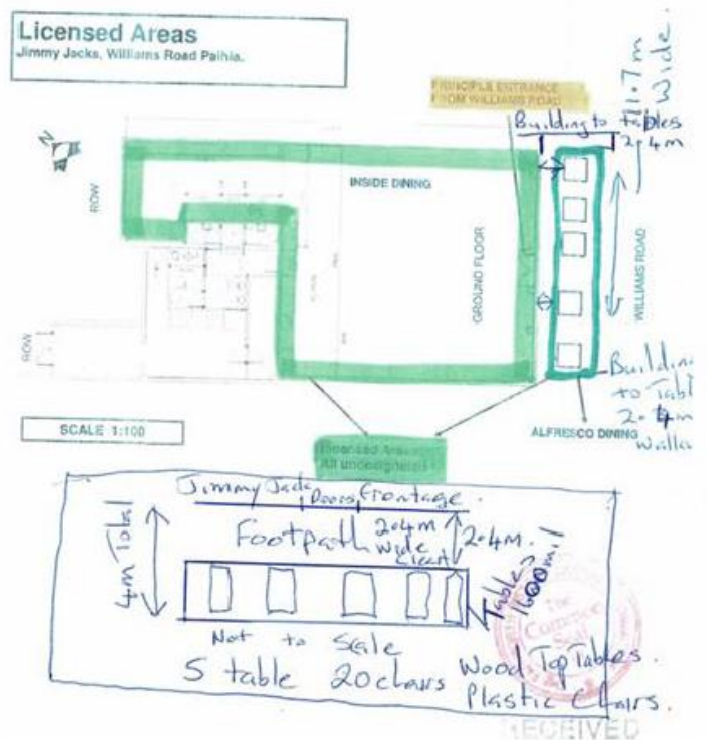 Licensed Areas
Jimmy Jacks, Williams Road Paihia.
PRINCIPLE ENTRANCE
FROM WILLIAMS ROAD
11.7m
Wide.
Building to tables
2.4m
N
ROW
INSIDE DINING
GROUND FLOOR
WILLIAMS ROAD
ROW
Building
to Tabl
2.4m
Walla
ALFRESCO DINING
SCALE 1:100
Licensed Areas
All undesignated
Jimmy Jacks Doors Frontage.
4m Total
Footpath 2.4m
Wide
Clear
2.4m.
Tables
1600mil
Not to Scale
5 table 20 chairs Wood Top Tables.
Plastic Chairs.
the
Common
Seal
RECEIVED